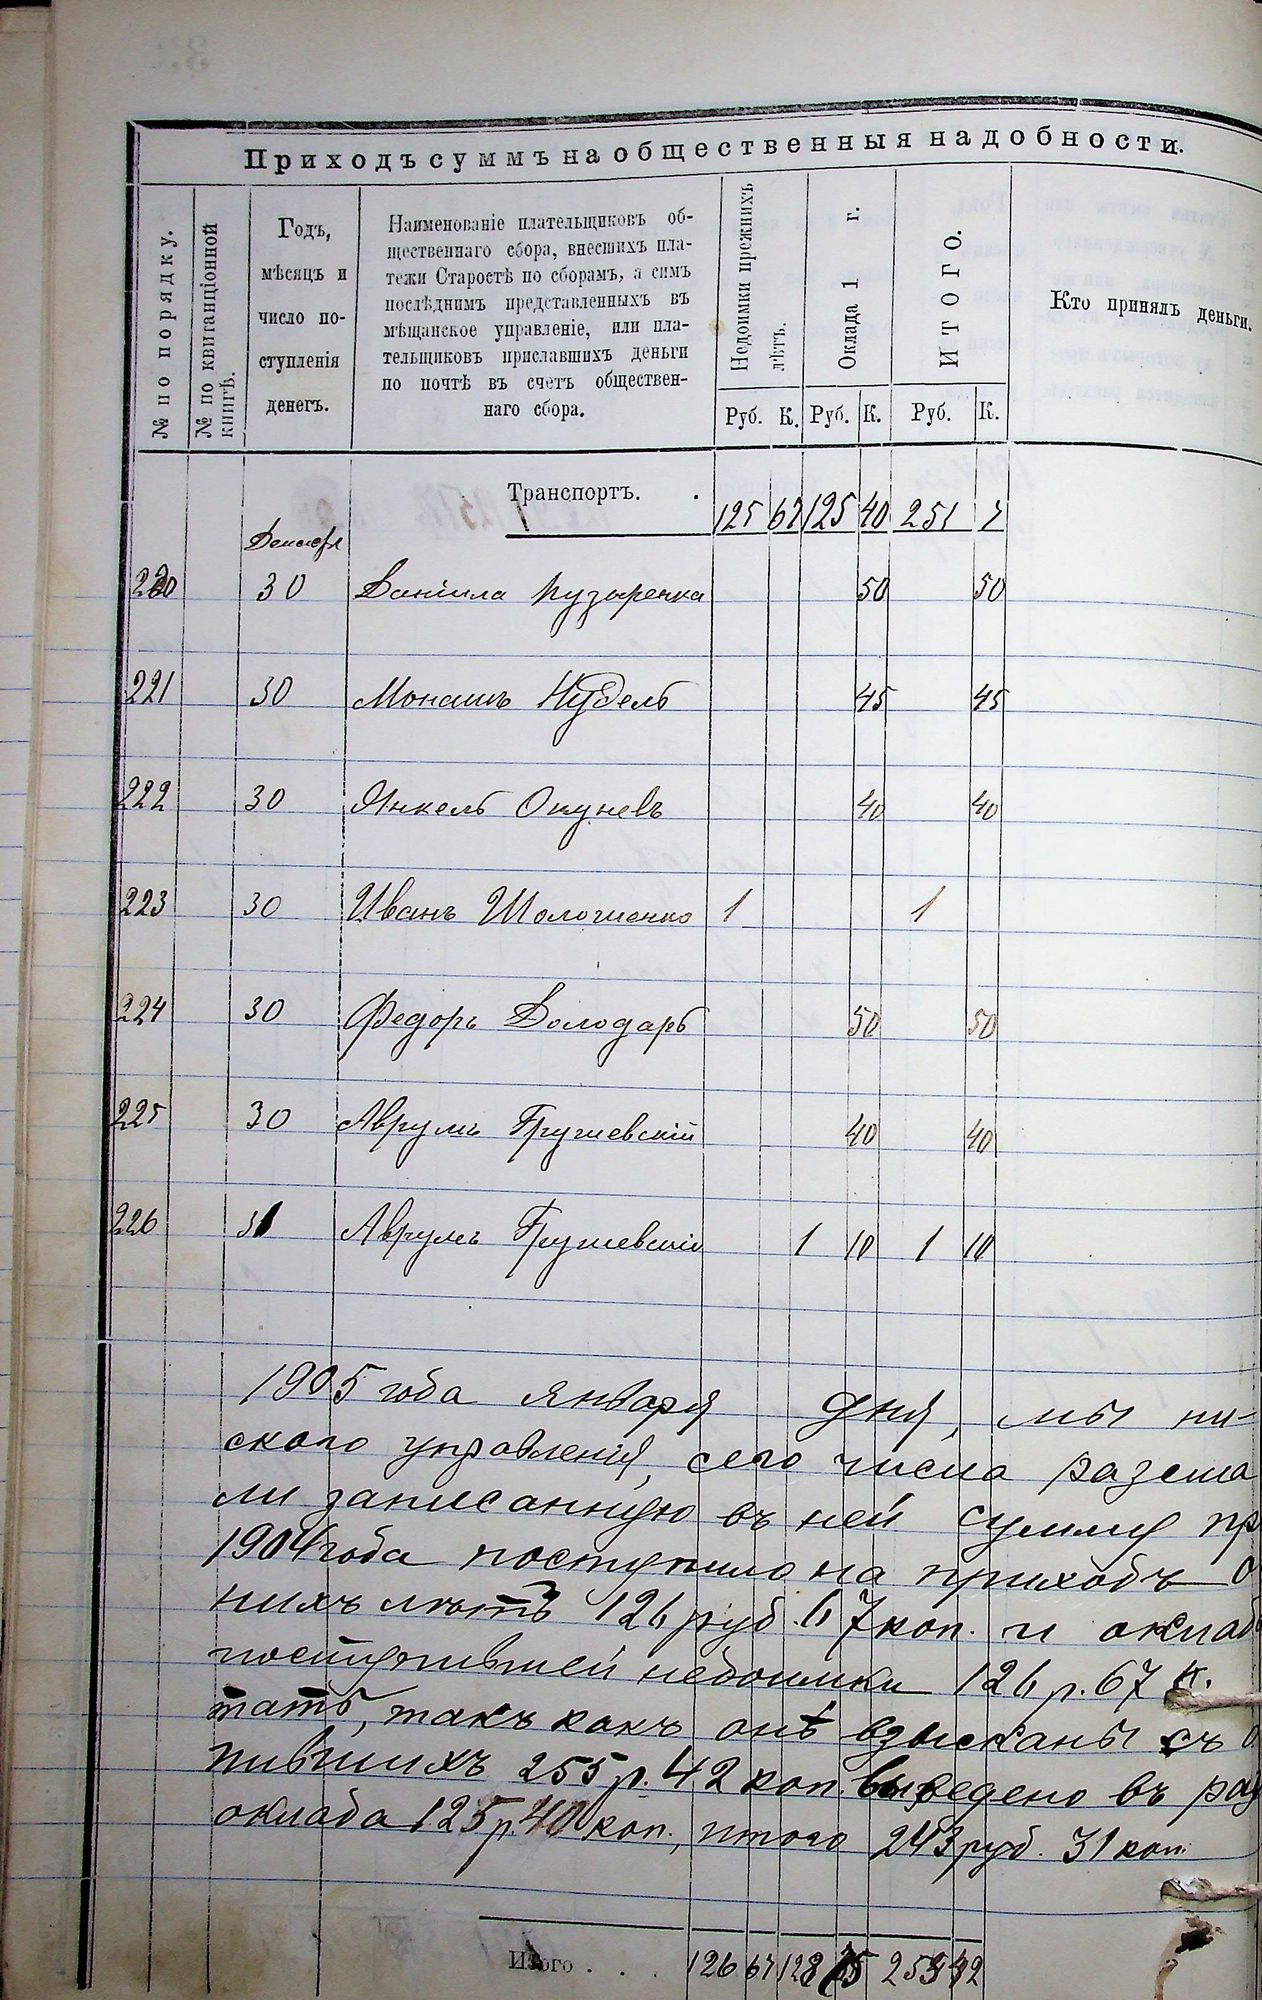 Приходъ суммъ на общественныя надобности.
№ по порядку.
№ по квитанціонной
книгѣ.
Годъ,
мѣсяцъ и
число по-
ступленія
денегъ.
Наименованіе плательщиковъ об-
щественнаго сбора, внесшихъ пла-
тежи Старостѣ по сборамъ, а симъ
послѣднимъ представленныхъ въ
мѣщанское управленіе, или пла-
тельщиковъ приславшихъ деньги
по почтѣ въ счетъ обществен-
наго сбора.
Недоимки прежнихъ
лѣтъ.
Оклада 1 г.
ИТОГО.
Кто принялъ деньги.
Руб. К. Руб. К. Руб. К.
Транспортъ. 125 67 125 40 251 7
Декабря
220 30 Даніила Пузыренка 50 50
221 30 Монашъ Нудель 45 45
222 30 Янкель Окуневъ 40 40
223 30 Иванъ 1 1
224 30 Федоръ Володарь 50 50
225 30 Аврумъ Грушевскій 40 40
226 31 Аврумъ Грушевскій 1 10 1 10
1905 года января дня, мы ни-
скаго управленія, сего числа разсма
ли записанную въ ней сумму пр
1904 года поступило на приходъ о
нихъ лѣтъ 126 руб. 67 коп. и оклад
поступившей недоимки 126 р. 67 к.
тать, такъ какъ онѣ взысканы съ о
пившихъ 255 р. 42 коп. выведено въ рас
оклада 125 р. 40 коп., итого 243 руб. 31 коп.
Итого . . . 126 67 128 75 255 42